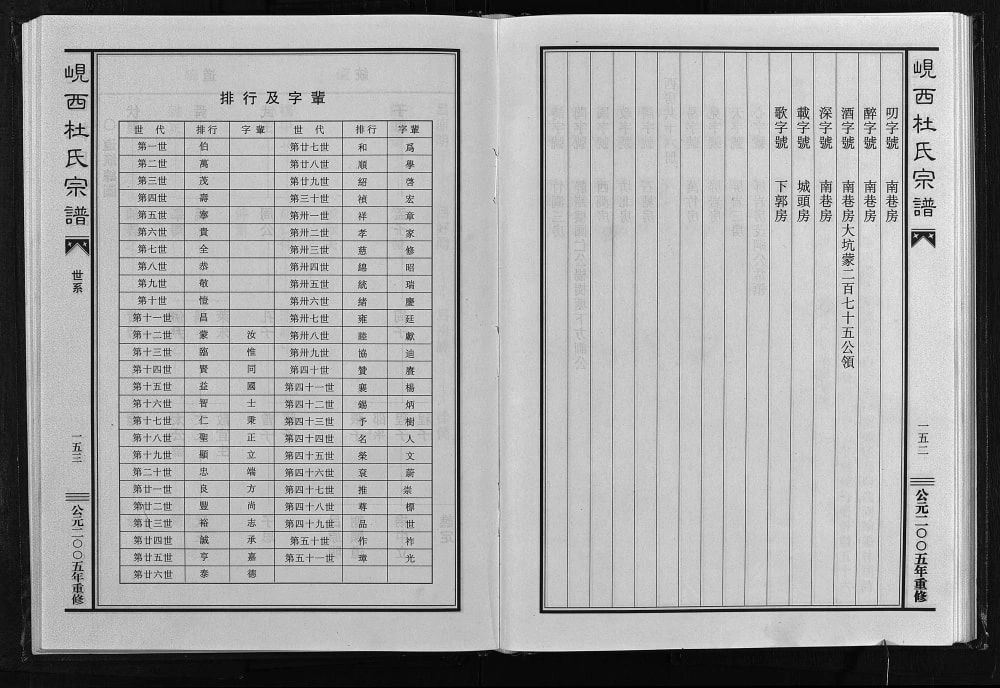 峴西杜氏宗譜
一五二
公元二〇〇五年重修
叨字號　南巷房
醉字號　南巷房
酒字號　南巷房大坑蒙二百七十五公領
深字號　南巷房
載字號　城頭房
歌字號　下郭房
排行及字輩
世代 排行 字輩 世代 排行 字輩
第一世 伯 第廿七世 和 爲
第二世 萬 第廿八世 順 學
第三世 茂 第廿九世 紹 啓
第四世 壽 第三十世 禎 宏
第五世 寧 第卅一世 祥 章
第六世 貴 第卅二世 孝 家
第七世 全 第卅三世 慈 修
第八世 恭 第卅四世 緜 昭
第九世 敬 第卅五世 統 瑞
第十世 愷 第卅六世 緒 慶
第十一世 昌 第卅七世 雍 廷
第十二世 蒙 汝 第卅八世 睦 獻
第十三世 臨 惟 第卅九世 協 迪
第十四世 賢 同 第四十世 贊 賡
第十五世 益 國 第四十一世 襄 楊
第十六世 智 士 第四十二世 錫 炳
第十七世 仁 秉 第四十三世 予 樹
第十八世 聖 正 第四十四世 名 人
第十九世 顯 立 第四十五世 榮 文
第二十世 忠 端 第四十六世 袞 蔚
第廿一世 良 方 第四十七世 推 崇
第廿二世 豐 尚 第四十八世 尊 標
第廿三世 裕 志 第四十九世 品 世
第廿四世 誠 承 第五十世 作 祚
第廿五世 亨 嘉 第五十一世 璋 光
第廿六世 泰 德
峴西杜氏宗譜
世系
一五三
公元二〇〇五年重修